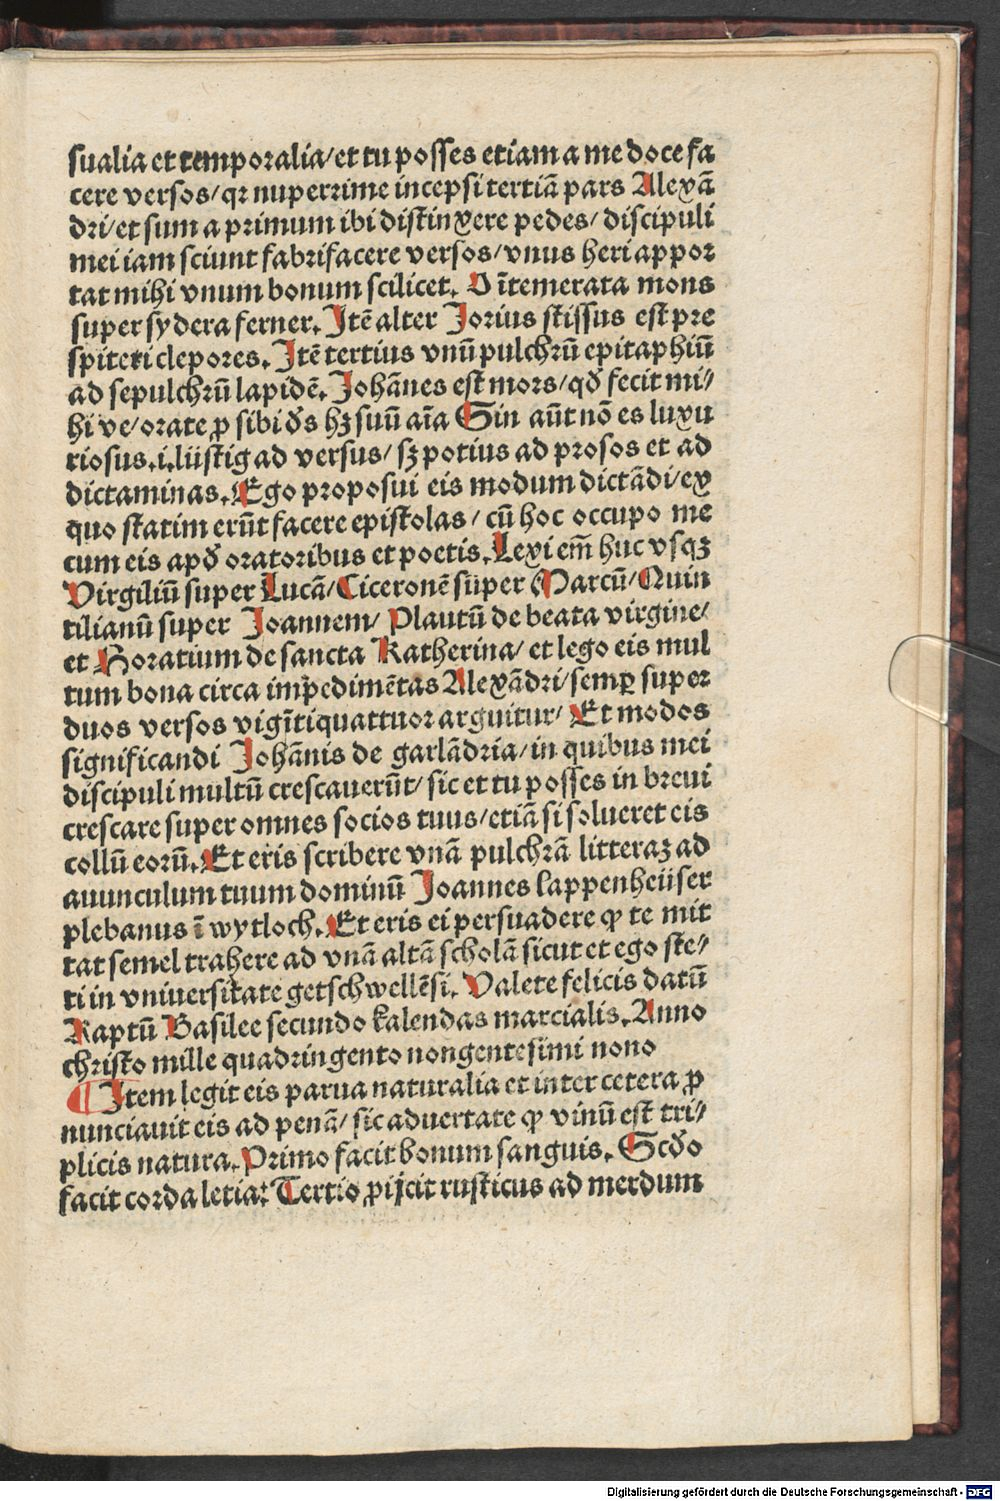 sualia et temporalia/et tu posses etiam a me doce fa
cere versos/qꝛ nuperrime incepsi tertiā pars Alexā
dri/et sum a primum ibi distinxere pedes/discipuli
mei iam sciunt fabrifacere versos/vnus heri appor
tat mihi vnum bonum scilicet. O ītemerata mons
super sydera ferner. Itē alter Jorius stissus est pre
spiteri clepores. Itē tertius vnū pulchrū epitaphiū
ad sepulchrū lapidē. Johānes est mors/qđ fecit mi/
hi ve/orate ꝓ sibi đs hꝫ suū aīa Sin aūt nō es luxu
riosus.i.lüstig ad versus/sꝫ potius ad prosos et ad
dictaminas. Ego proposui eis modum dictādi/ex
quo statim erūt facere epistolas/cū hoc occupo me
cum eis apđ oratoribus et poetis. Lexi em̄ huc vsqꝫ
Virgiliū super Lucā/Ciceronē süper Marcū/Quin
tilianū super Joannem/Plautū de beata virgine/
et Horatium de sancta Katherina/et lego eis mul
tum bona circa impedimētas Alexādri/semꝑ super
duos versos vigītiquattuor arguitur/Et modos
significandi Johānis de garlādria/in quibus mei
discipuli multū crescauerūt/sic et tu posses in breui
crescare super omnes socios tuus/etiā si solueret eis
collū eorū. Et eris scribere vnā pulchrā litteraꝫ ad
auunculum tuum dominū Joannes lappenheüser
plebanus ī wytloch. Et eris ei persuadere ꝙ te mit
tat semel trahere ad vnā altā scholā sicut et ego ste/
ti in vniuersitate getschwellēsi. Valete felicis datū
Raptū Basilee secundo kalendas marcialis. Anno
christo mille quadringento nongentesimi nono
¶ Item legit eis parua naturalia et inter cetera ꝓ
nunciauit eis ad penā/sic aduertate ꝙ vinū est tri/
plicis natura. Primo facit bonum sanguis. Scđo
facit corda letiaꝛ Tertio ꝓijcit rusticus ad merdum
Digitalisierung gefördert durch die Deutsche Forschungsgemeinschaft - DFG